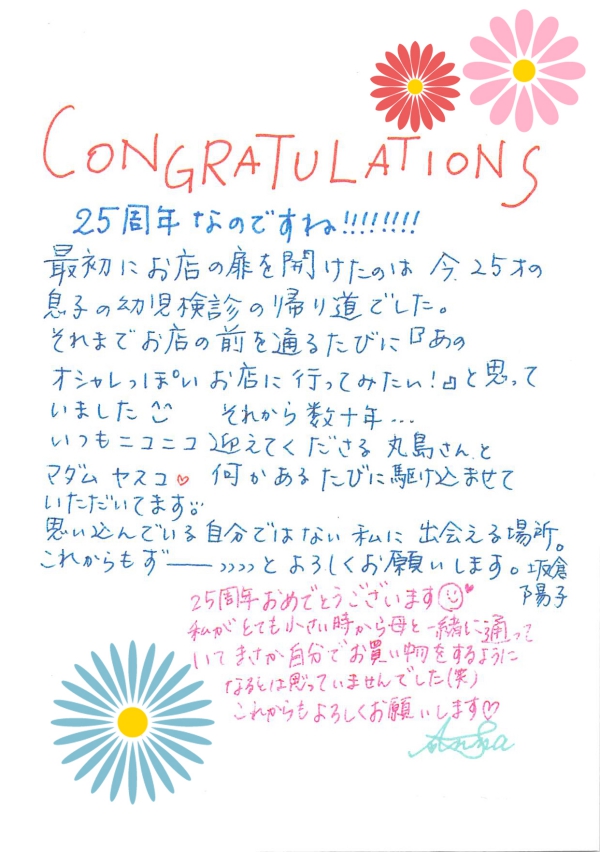 CONGRATULATIONS
25周年なのですね!!!!!!!!
最初にお店の扉を開けたのは 今、25才の
息子の幼児検診の帰り道でした。
それまでお店の前を通るたびに『あの
オシャレっぽいお店に行ってみたい!』と思って
いました それから数十年…
いつもニコニコ迎えてくださる丸島さんと
マダムヤスコ♡ 何かあるたびに駆け込ませて
いただいてます
思い込んでいる自分ではない私に出会える場所。
これからもずーーっとよろしくお願いします。坂倉
陽子
25周年おめでとうございます
私がとても小さい時から母と一緒に通って
いてまさか自分でお買い物をするように
なるとは思っていませんでした(笑)
これからもよろしくお願いします♡